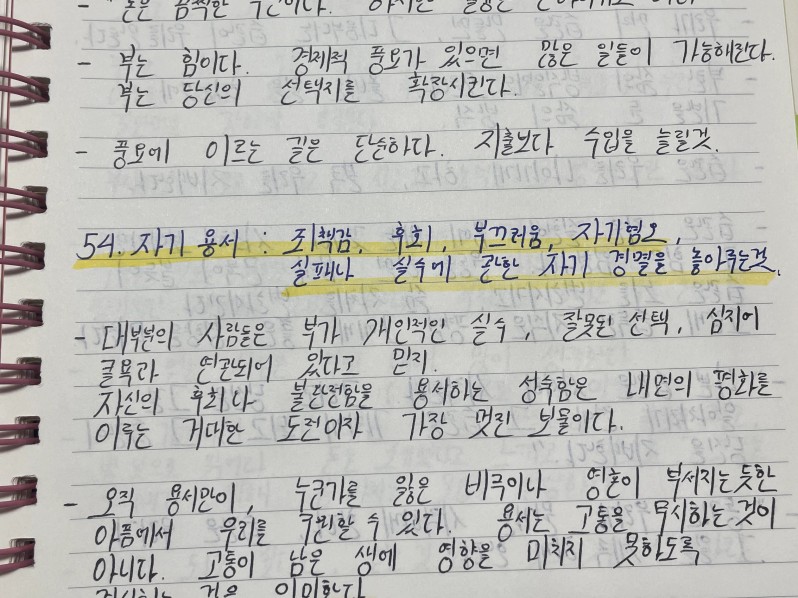 - 부는 힘이다. 경제적 풍요가 있으면 많은 일들이 가능해진다.
부는 당신의 선택지를 확장시킨다.
- 풍요에 이르는 길은 단순하다. 지출보다 수입을 늘릴것.
54. 자기 용서 : 죄책감, 후회, 부끄러움, 자기혐오,
실패나 실수에 관한 자기 경멸을 놓아주는것.
- 대부분의 사람들은 부가 개인적인 실수, 잘못된 선택, 심지어
굴욕과 연관되어 있다고 믿지.
자신의 후회나 불완전함을 용서하는 성숙함은 내면의 평화를
이루는 거대한 도전이자 가장 멋진 보물이다.
- 오직 용서만이, 누군가를 잃은 비극이나 영혼이 부서지는 듯한
아픔에서 우리를 구원할 수 있다. 용서는 고통을 무시하는 것이
아니다. 고통이 남은 생에 영향을 미치지 못하도록